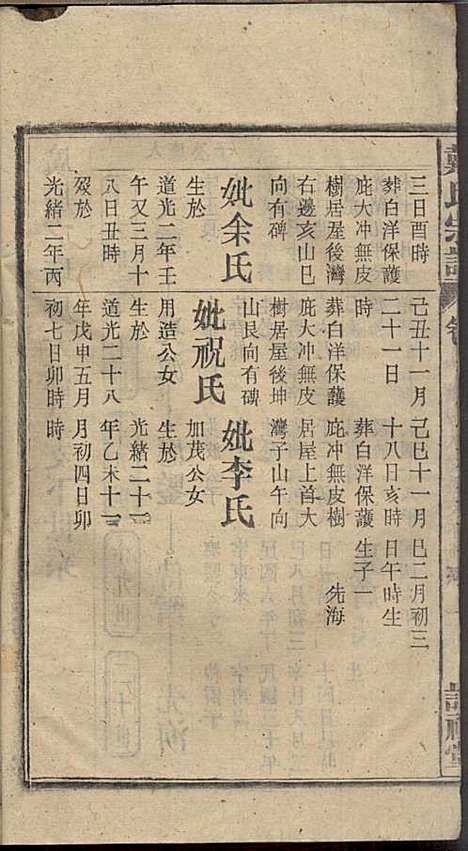 戴氏宗譜
三日酉時
葬白洋保護
庇大冲無皮
樹居屋後灣
右邊亥山巳
向有碑
妣余氏
生於
道光二年壬
午又三月十
八日丑時
殁於
光緒二年丙
己丑十一月
二十一日
時
葬白洋保護
庇大冲無皮
樹居屋後坤
山艮向有碑
妣祝氏
用造公女
生於
道光二十八
年戊申五月
初七日卯時
己巳十一月
十八日亥時
葬白洋保護
庇冲無皮樹
居屋上首大
灣子山午向
妣李氏
加茂公女
生於
光緒二十一
年乙未十一
月初四日卯
時
巳二月初三
日午時生
生子一
先海